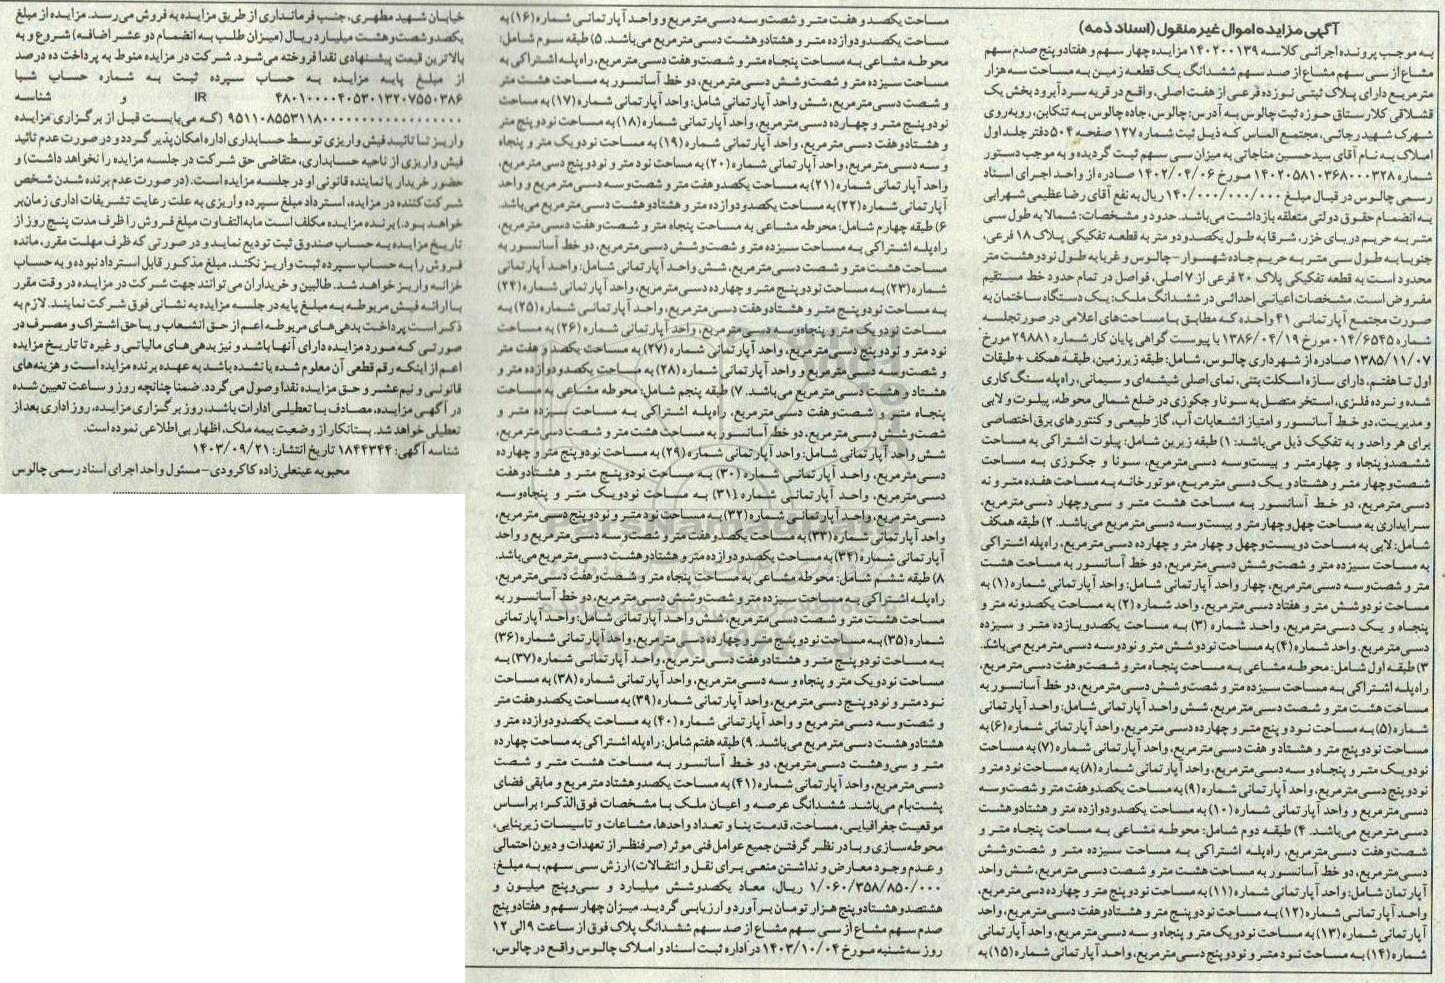 آگهی مزایده اموال غیر منقول (اسناد ذمه)
به موجب پرونده اجرائی کلاسه ۱۴۰۲۰۰۱۳۹ مزایده چهار سهم و هفتادو پنج صدم سهم
مشاع از سی سهم مشاع از صد سهم ششدانگ یک قطعه زمین به مساحت سه هزار
مترمربع دارای پلاک ثبتی نوزده فرعی از هفت اصلی، واقع در قریه سردآبرود بخش یک
قشلاقی کلارستاق حوزه ثبت چالوس به آدرس: چالوس، جاده چالوس به تنکابن، روبه‌روی
شهرک شهید رجائی، مجتمع الماس که ذیل ثبت شماره ۱۲۷ صفحه ۵۰۴ دفتر جلد اول
املاک به نام آقای سیدحسین مناجاتی به میزان سی سهم ثبت گردیده و به موجب دستور
شماره ۱۴۰۲۰۵۸۱۰۳۶۸۰۰۰۳۲۸ مورخ ۱۴۰۲/۰۴/۰۶ صادره از واحد اجرای اسناد
رسمی چالوس در قبال مبلغ ۱۴۰/۰۰۰/۰۰۰/۰۰۰ ریال به نفع آقای رضا عظیمی شهرابی
به انضمام حقوق دولتی متعلقه بازداشت می‌باشد. حدود و مشخصات: شمالا به طول سی
متر به حریم دریای خزر، شرقا به طول یکصدودو متر به قطعه تفکیکی پلاک ۱۸ فرعی،
جنوبا به طول سی متر به حریم جاده شهسوار-چالوس و غربا به طول نودوهشت متر
محدود است به قطعه تفکیکی پلاک ۲۰ فرعی از ۷ اصلی، فواصل در تمام حدود خط مستقیم
مفروض است. مشخصات اعیانی احداثی در ششدانگ ملک: یک دستگاه ساختمان به
صورت مجتمع آپارتمانی ۴۱ واحده که مطابق با مساحت‌های اعلامی در صورتجلسه
شماره ۰۱۴/۶۵۴۵ مورخ ۱۳۸۶/۰۴/۱۹ با پیوست گواهی پایان کار شماره ۲۹۸۸۱ مورخ
۱۳۸۵/۱۱/۰۷ صادره از شهرداری چالوس، شامل: طبقه زیرزمین، طبقه همکف + طبقات
اول تا هفتم، دارای سازه اسکلت بتنی، نمای اصلی شیشه‌ای و سیمانی، راه‌پله سنگ کاری
شده و نرده فلزی، استخر متصل به سونا و جکوزی در ضلع شمالی محوطه، پیلوت و لابی
و مدیریت، دو خط آسانسور و امتیاز انشعابات آب، گاز طبیعی و کنتورهای برق اختصاصی
برای هر واحد و به تفکیک ذیل می‌باشد: ۱) طبقه زیرین شامل: پیلوت اشتراکی به مساحت
ششصدوپنجاه و چهارمتر و بیست‌وسه دسی‌مترمربع، سونا و جکوزی به مساحت
شصت‌وچهار متر و هشتاد و یک دسی مترمربع، موتورخانه به مساحت هفده متر و نه
دسی‌مترمربع، دو خط آسانسور به مساحت هشت متر و سی‌وچهار دسی‌مترمربع،
سرایداری به مساحت چهل‌وچهار متر و بیست‌وسه دسی مترمربع می‌باشد. ۲) طبقه همکف
شامل: لابی به مساحت دویست‌وچهل و چهار متر و چهارده دسی‌مترمربع، راه‌پله اشتراکی
به مساحت سیزده متر و شصت‌وشش دسی‌مترمربع، دو خط آسانسور به مساحت هشت
متر و شصت‌وسه دسی‌مترمربع، چهار واحد آپارتمانی شامل: واحد آپارتمانی شماره (۱) به
مساحت نودوشش متر و هفتاد دسی‌مترمربع، واحد شماره (۲) به مساحت یکصدونه متر و
پنجاه و یک دسی‌مترمربع، واحد شماره (۳) به مساحت یکصدویازده متر و سیزده
دسی‌مترمربع. واحد شماره (۴) به مساحت نودوشش متر و نودوسه دسی‌مترمربع می‌باشد.
۳) طبقه اول شامل: محوطه مشاعی به مساحت پنجاه متر و شصت‌وهفت دسی‌مترمربع،
راه‌پله اشتراکی به مساحت سیزده متر و شصت‌وشش دسی‌مترمربع، دو خط آسانسور به
مساحت هشت متر و شصت دسی‌مترمربع، شش واحد آپارتمانی شامل: واحد آپارتمانی
شماره (۵) به مساحت نود و پنج متر و چهارده دسی‌مترمربع، واحد آپارتمانی شماره (۶) به
مساحت نودوپنج متر و هشتاد و هفت دسی‌مترمربع، واحد آپارتمانی شماره (۷) به مساحت
نودویک متر و پنجاه و سه دسی‌مترمربع، واحد آپارتمانی شماره (۸) به مساحت نود متر و
نودوپنج دسی‌مترمربع، واحد آپارتمانی شماره (۹) به مساحت یکصدوهفت متر و شصت‌وسه
دسی‌مترمربع و واحد آپارتمانی شماره (۱۰) به مساحت یکصدودوازده متر و هشتادوهشت
دسی‌مترمربع می‌باشد. ۴) طبقه دوم شامل: محوطه مشاعی به مساحت پنجاه متر و
شصت‌وهفت دسی‌مترمربع، راه‌پله اشتراکی به مساحت سیزده متر و شصت‌وشش
دسی‌مترمربع، دو خط آسانسور به مساحت هشت متر و شصت دسی‌مترمربع، شش واحد
آپارتمان شامل: واحد آپارتمانی شماره (۱۱) به مساحت نودوپنج متر و چهارده دسی‌مترمربع،
واحد آپارتمانی شماره (۱۲) به مساحت نودوپنج متر و هشتادوهفت دسی‌مترمربع، واحد
آپارتمانی شماره (۱۳) به مساحت نودویک متر و پنجاه و سه دسی‌مترمربع، واحد آپارتمانی
شماره (۱۴) به مساحت نود متر و نودوپنج دسی‌مترمربع، واحد آپارتمانی شماره (۱۵) به
مساحت یکصدو هفت متر و شصت‌وسه دسی‌مترمربع و واحد آپارتمانی شماره (۱۶) به
مساحت یکصدودوازده متر و هشتادوهشت دسی‌مترمربع می‌باشد. ۵) طبقه سوم شامل:
محوطه مشاعی به مساحت پنجاه متر و شصت‌وهفت دسی‌مترمربع، راه‌پله اشتراکی به
مساحت سیزده متر و شصت‌وشش دسی‌مترمربع، دو خط آسانسور به مساحت هشت متر
و شصت دسی‌مترمربع، شش واحد آپارتمانی شامل: واحد آپارتمانی شماره (۱۷) به مساحت
نودوپنج متر و چهارده دسی‌مترمربع، واحد آپارتمانی شماره (۱۸) به مساحت نودوپنج متر
و هشتادوهفت دسی‌مترمربع، واحد آپارتمانی شماره (۱۹) به مساحت نودویک متر و پنجاه
و سه دسی‌مترمربع، واحد آپارتمانی شماره (۲۰) به مساحت نود متر و نودوپنج دسی‌مترمربع،
واحد آپارتمانی شماره (۲۱) به مساحت یکصدوهفت متر و شصت‌وسه دسی‌مترمربع و واحد
آپارتمانی شماره (۲۲) به مساحت یکصدودوازده متر و هشتادوهشت دسی‌مترمربع می‌باشد.
۶) طبقه چهارم شامل: محوطه مشاعی به مساحت پنجاه متر و شصت‌وهفت دسی‌مترمربع،
راه‌پله اشتراکی به مساحت سیزده متر و شصت‌وشش دسی‌مترمربع، دو خط آسانسور به
مساحت هشت متر و شصت دسی‌مترمربع، شش واحد آپارتمانی شامل: واحد آپارتمانی
شماره (۲۳) به مساحت نودوپنج متر و چهارده دسی‌مترمربع، واحد آپارتمانی شماره (۲۴)
به مساحت نودوپنج متر و هشتادوهفت دسی‌مترمربع، واحد آپارتمانی شماره (۲۵) به
مساحت نودویک متر و پنجاه‌وسه دسی‌مترمربع، واحد آپارتمانی شماره (۲۶) به مساحت
نود متر و نودوپنج دسی‌مترمربع، واحد آپارتمانی شماره (۲۷) به مساحت یکصد و هفت متر
و شصت‌وسه دسی‌مترمربع و واحد آپارتمانی شماره (۲۸) به مساحت یکصدودوازده متر و
هشتاد و هشت دسی مترمربع می‌باشد. ۷) طبقه پنجم شامل: محوطه مشاعی به مساحت
پنجاه متر و شصت‌وهفت دسی‌مترمربع، راه‌پله اشتراکی به مساحت سیزده متر و
شصت‌وشش دسی‌مترمربع، دو خط آسانسور به مساحت هشت متر و شصت دسی‌مترمربع،
شش واحد آپارتمانی شامل: واحد آپارتمانی شماره (۲۹) به مساحت نودوپنج متر و چهارده
دسی‌مترمربع، واحد آپارتمانی شماره (۳۰) به مساحت نودوپنج متر و هشتادوهفت
دسی‌مترمربع، واحد آپارتمانی شماره (۳۱) به مساحت نودویک متر و پنجاه‌وسه
دسی‌مترمربع، واحد آپارتمانی شماره (۳۲) به مساحت نود متر و نودوپنج دسی‌مترمربع،
واحد آپارتمانی شماره (۳۳) به مساحت یکصدوهفت متر و شصت‌وسه دسی‌مترمربع و واحد
آپارتمانی شماره (۳۴) به مساحت یکصدودوازده متر و هشتادوهشت دسی مترمربع می‌باشد.
۸) طبقه ششم شامل: محوطه مشاعی به مساحت پنجاه متر و شصت‌وهفت دسی‌مترمربع،
راه‌پله اشتراکی به مساحت سیزده متر و شصت‌وشش دسی‌مترمربع، دو خط آسانسور به
مساحت هشت متر و شصت دسی‌مترمربع، شش واحد آپارتمانی شامل: واحد آپارتمانی
شماره (۳۵) به مساحت نودوپنج متر و چهارده دسی‌مترمربع، واحد آپارتمانی شماره (۳۶)
به مساحت نودوپنج متر و هشتادوهفت دسی‌مترمربع، واحد آپارتمانی شماره (۳۷) به
مساحت نودویک متر و پنجاه و سه دسی‌مترمربع، واحد آپارتمانی شماره (۳۸) به مساحت
نود متر و نودوپنج دسی‌مترمربع، واحد آپارتمانی شماره (۳۹) به مساحت یکصدوهفت متر
و شصت‌وسه دسی‌مترمربع و واحد آپارتمانی شماره (۴۰) به مساحت یکصدودوازده متر و
هشتادوهشت دسی مترمربع می‌باشد. ۹) طبقه هفتم شامل: راه‌پله اشتراکی به مساحت چهارده
متر و سی‌وهشت دسی‌مترمربع، دو خط آسانسور به مساحت هشت متر و شصت
دسی‌مترمربع، واحد آپارتمانی شماره (۴۱) به مساحت یکصدوهشتاد مترمربع و مابقی فضای
پشت‌بام می‌باشد. ششدانگ عرصه و اعیان ملک با مشخصات فوق‌الذکر؛ براساس
موقعیت جغرافیایی، مساحت، قدمت بنا و تعداد واحدها، مشاعات و تاسیسات زیربنایی،
محوطه‌سازی و با در نظر گرفتن جمیع عوامل فنی موثر (صرفنظر از تعهدات و دیون احتمالی
و عدم وجود معارض و نداشتن منعی برای نقل و انتقالات) ارزش سی سهم، به مبلغ:
۱/۰۶۰/۳۵۸/۸۵۰/۰۰۰ ریال، معاد یکصدوشش میلیارد و سی‌وپنج میلیون و
هشتصدوهشتادوپنج هزار تومان برآورد و ارزیابی گردید. میزان چهار سهم و هفتادوپنج
صدم سهم مشاع از سی سهم مشاع از صد سهم ششدانگ پلاک فوق از ساعت ۹ الی ۱۲
روز سه‌شنبه مورخ ۱۴۰۳/۱۰/۰۴ در اداره ثبت اسناد و املاک چالوس واقع در چالوس،
خیابان شهید مطهری، جنب فرمانداری از طریق مزایده به فروش می‌رسد. مزایده از مبلغ
یکصدوشصت‌وهشت میلیارد ریال (میزان طلب به انضمام دو عشر اضافه) شروع و به
بالاترین قیمت پیشنهادی نقدا فروخته می‌شود. شرکت در مزایده منوط به پرداخت ده درصد
از مبلغ پایه مزایده به حساب سپرده ثبت به شماره حساب شبا
IR ۴۸۰۱۰۰۰۰۴۰۵۳۰۱۳۲۰۷۵۵۰۳۸۶ و شناسه
(که می‌بایست قبل از برگزاری مزایده
واریز تا تائید فیش واریزی توسط حسابداری اداره امکان‌پذیر گردد و در صورت عدم تائید
فیش واریزی از ناحیه حسابداری، متقاضی حق شرکت در جلسه مزایده را نخواهد داشت) و
حضور خریدار یا نماینده قانونی او در جلسه مزایده است. (در صورت عدم برنده شدن شخص
شرکت کننده در مزایده، استرداد مبلغ سپرده واریزی به علت رعایت تشریفات اداری زمان‌بر
خواهد بود.) برنده مزایده مکلف است مابه‌التفاوت مبلغ فروش را ظرف مدت پنج روز از
تاریخ مزایده به حساب صندوق ثبت تودیع نماید و در صورتی که ظرف مهلت مقرر، مانده
فروش را به حساب سپرده ثبت واریز نکند، مبلغ مذکور قابل استرداد نبوده و به حساب
خزانه واریز خواهد شد. طالبین و خریداران می‌توانند جهت شرکت در مزایده در وقت مقرر
با ارائه فیش مربوطه به مبلغ پایه در جلسه مزایده به نشانی فوق شرکت نمایند. لازم به
ذکر است پرداخت بدهی‌های مربوطه اعم از حق انشعاب و یا حق اشتراک و مصرف در
صورتی که مورد مزایده دارای آنها باشد و نیز بدهی‌های مالیاتی و غیره تا تاریخ مزایده
اعم از اینکه رقم قطعی آن معلوم شده یا نشده باشد به عهده برنده مزایده است و هزینه‌های
قانونی و نیم‌عشر و حق مزایده نقدا وصول می‌گردد. ضمنا چنانچه روز و ساعت تعیین شده
در آگهی مزایده، مصادف با تعطیلی ادارات باشد، روز برگزاری مزایده، روز اداری بعد از
تعطیلی خواهد شد. بستانکار از وضعیت بیمه ملک، اظهار بی‌اطلاعی نموده است.
شناسه آگهی: ۱۸۴۴۳۴۴ تاریخ انتشار: ۱۴۰۳/۰۹/۲۱
محبوبه عینعلی‌زاده کاکرودی-مسئول واحد اجرای اسناد رسمی چالوس